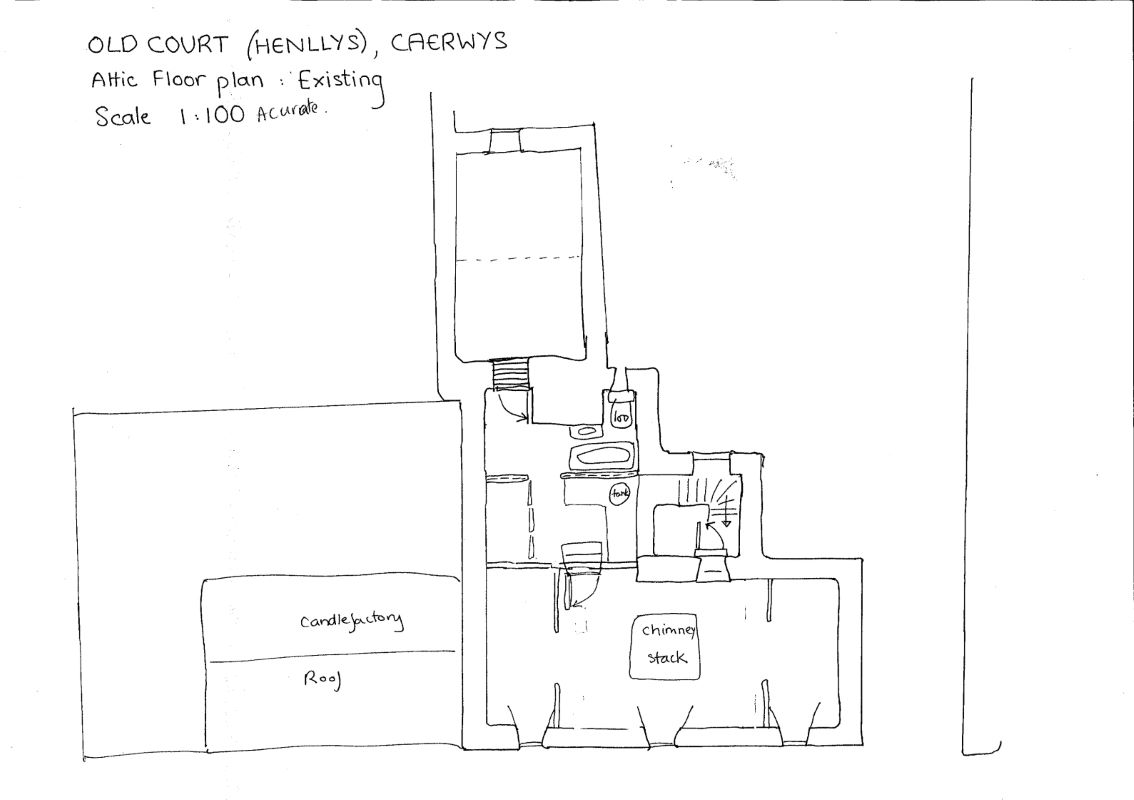 OLD COURT (HENLLYS), CAERWYS
Attic Floor plan : Existing
Scale 1:100 Acurate.
loo
tank
chimney
stack
Candlefactory
Roof